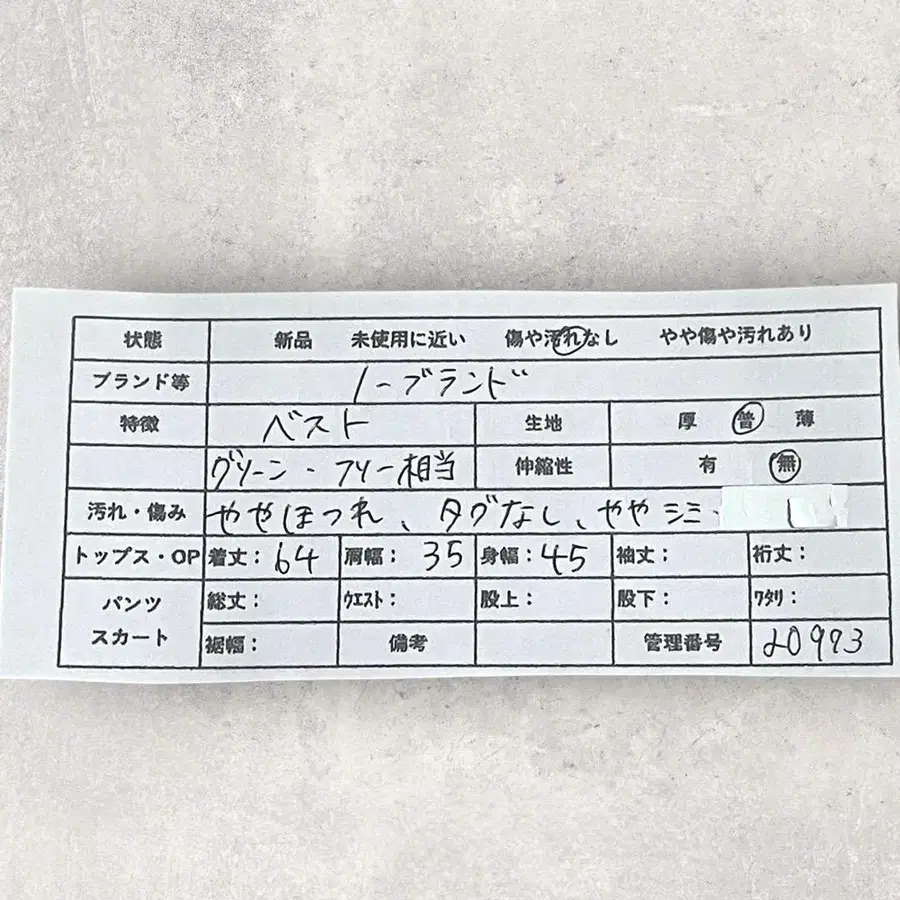 状態 新品 未使用に近い 傷や汚れなし やや傷や汚れあり
ブランド等 ノーブランド
特徴 ベスト 生地 厚 普 薄
グリーン・フリー相当 伸縮性 有 無
汚れ・傷み ややほつれ、タグなし、ややシミ・
トップス・OP 着丈：64 肩幅：35 身幅：45 袖丈： 裄丈：
パンツ スカート 総丈： ウエスト： 股上： 股下： ワタリ：
裾幅： 備考 管理番号 20973